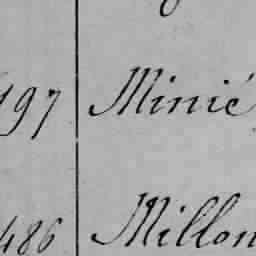 197 Minié
486 Millon